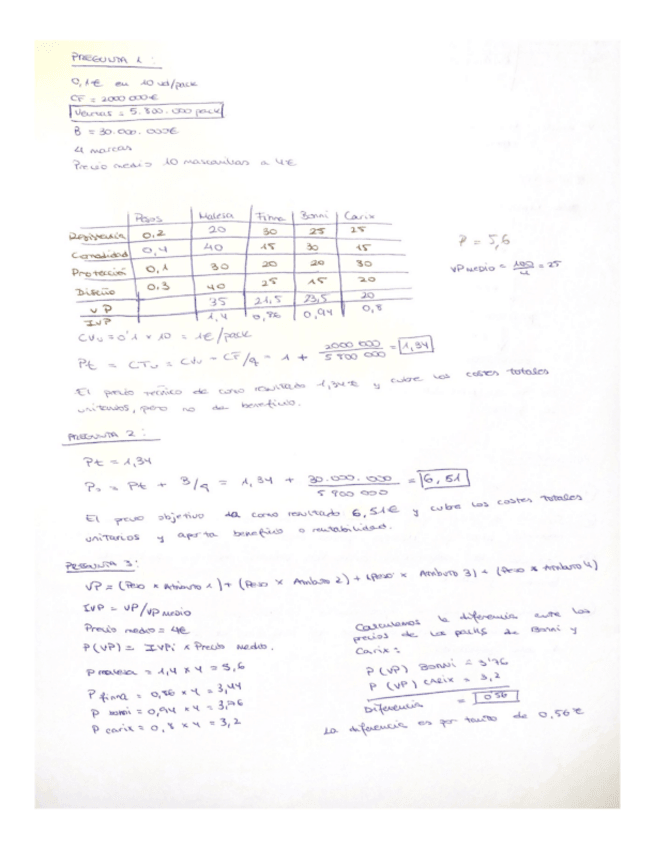 PREGUNTA 1:
0,1€ en 10 ud/pack
CF = 2000 000€
Ventas = 5.800.000 pack
B = 30.000.000€
4 marcas
Precio medio 10 mascarillas a 4€
Pesos Malesa Firma Bonni Carix
Resistencia 0,2 20 30 25 25
Comodidad 0,4 40 15 30 15
Protección 0,1 30 20 20 30
Diseño 0,3 40 25 15 20
VP 35 21,5 23,5 20
IVP 1,4 0,86 0,94 0,8
P = 5,6
VP medio = 100/4 = 25
CVu = 0'1 x 10 = 1€/pack
Pt = CTu = CVu + CF/q = 1 + 2000 000/5 800 000 = 1,34
El precio técnico da como resultado 1,34€ y cubre los costes totales
unitarios, pero no da beneficio.
PREGUNTA 2:
Pt = 1,34
Po = Pt + B/q = 1,34 + 30.000.000/5 800 000 = 6,51
El precio objetivo da como resultado 6,51€ y cubre los costes totales
unitarios y aporta beneficio o rentabilidad.
PREGUNTA 3:
VP = (Peso x Atributo 1) + (Peso x Atributo 2) + (Peso x Atributo 3) + (Peso x Atributo 4)
IVP = VP/VP medio
Precio medio = 4€
P(VP) = IVPi x Precio medio.
P malesa = 1,4 x 4 = 5,6
P firma = 0,86 x 4 = 3,44
P bonni = 0,94 x 4 = 3,76
P carix = 0,8 x 4 = 3,2
Calculamos la diferencia entre los
precios de los packs de Bonni y
Carix:
P (VP) Bonni = 3'76
P (VP) Carix = 3,2
Diferencia = 0'56
La diferencia es por tanto de 0,56€